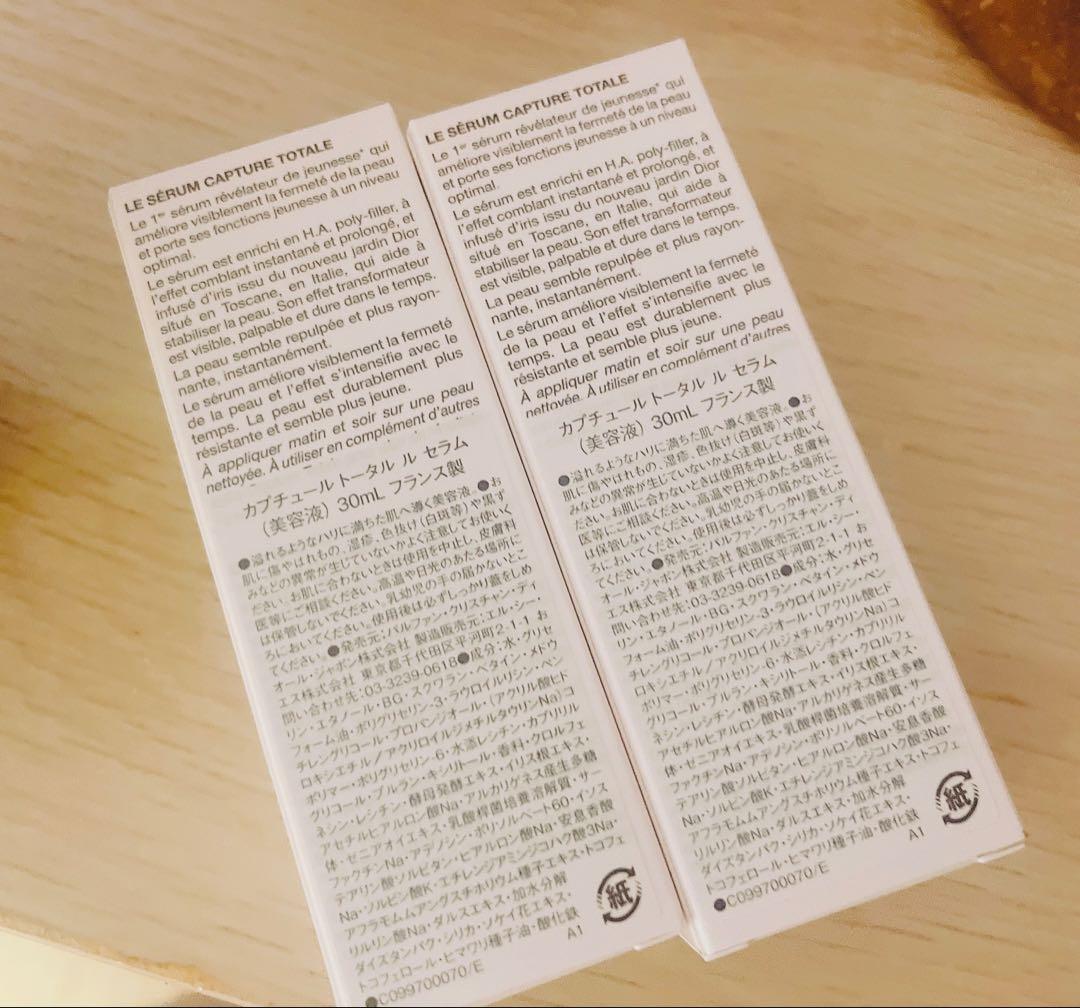 LE SÉRUM CAPTURE TOTALE
Le 1er sérum révélateur de jeunesse* qui
améliore visiblement la fermeté de la peau
et porte ses fonctions jeunesse à un niveau
optimal.
Le sérum est enrichi en H.A. poly-filler, à
l'effet comblant instantané et prolongé, et
infusé d'iris issu du nouveau jardin Dior
situé en Toscane, en Italie, qui aide à
stabiliser la peau. Son effet transformateur
est visible, palpable et dure dans le temps.
La peau semble repulpée et plus rayon-
nante, instantanément.
Le sérum améliore visiblement la fermeté
de la peau et l'effet s'intensifie avec le
temps. La peau est durablement plus
résistante et semble plus jeune.
À appliquer matin et soir sur une peau
nettoyée. À utiliser en complément d'autres
カプチュール トータル ル セラム
(美容液) 30mL フランス製
●溢れるようなハリに満ちた肌へ導く美容液。●お
肌に傷やはれもの、湿疹、色抜け(白斑等)や黒ず
みなどの異常が生じていないかよく注意してお使いく
ださい。お肌に合わないときは使用を中止し、皮膚科
医等にご相談ください。高温や日光のあたる場所に
は保管しないでください。乳幼児の手の届かないとこ
ろにおいてください。使用後は必ずしっかり蓋をしめ
てください。●発売元:パルファン・クリスチャン・ディ
オール・ジャポン株式会社 製造販売元:エル・シー・
エス株式会社 東京都千代田区平河町2-1-1 お
問い合わせ先:03-3239-0618●成分:水・グリセ
リン・エタノール・BG・スクワラン・ベタイン・メドウ
フォーム油・ポリグリセリン-3・ラウロイルリシン・ペン
チレングリコール・プロパンジオール・(アクリル酸ヒド
ロキシエチル/アクリロイルジメチルタウリンNa)コ
ポリマー・ポリグリセリン-6・水添レシチン・カプリリル
グリコール・プルラン・キシリトール・香料・クロルフェ
ネシン・レシチン・酵母発酵エキス・イリス根エキス・
アセチルヒアルロン酸Na・アルカリゲネス産生多糖
体・ゼニアオイエキス・乳酸桿菌培養溶解質・サー
ファクチンNa・アデノシン・ポリソルベート60・イソス
テアリン酸ソルビタン・ヒアルロン酸Na・安息香酸
Na・ソルビン酸K・エチレンジアミンジコハク酸3Na・
アフラモムムアングスチホリウム種子エキス・トコフェ
リルリン酸Na・ダルスエキス・加水分解
ダイズタンパク・シリカ・ソケイ花エキス・
トコフェロール・ヒマワリ種子油・酸化鉄
●C099700070/E
A1
紙
LE SÉRUM CAPTURE TOTALE
Le 1er sérum révélateur de jeunesse* qui
améliore visiblement la fermeté de la peau
et porte ses fonctions jeunesse à un niveau
optimal.
Le sérum est enrichi en H.A. poly-filler, à
l'effet comblant instantané et prolongé, et
infusé d'iris issu du nouveau jardin Dior
situé en Toscane, en Italie, qui aide à
stabiliser la peau. Son effet transformateur
est visible, palpable et dure dans le temps.
La peau semble repulpée et plus rayon-
nante, instantanément.
Le sérum améliore visiblement la fermeté
de la peau et l'effet s'intensifie avec le
temps. La peau est durablement plus
résistante et semble plus jeune.
À appliquer matin et soir sur une peau
nettoyée. À utiliser en complément d'autres
カプチュール トータル ル セラム
(美容液) 30mL フランス製
●溢れるようなハリに満ちた肌へ導く美容液。●お
肌に傷やはれもの、湿疹、色抜け(白斑等)や黒ず
みなどの異常が生じていないかよく注意してお使いく
ださい。お肌に合わないときは使用を中止し、皮膚科
医等にご相談ください。高温や日光のあたる場所に
は保管しないでください。乳幼児の手の届かないとこ
ろにおいてください。使用後は必ずしっかり蓋をしめ
てください。●発売元:パルファン・クリスチャン・ディ
オール・ジャポン株式会社 製造販売元:エル・シー・
エス株式会社 東京都千代田区平河町2-1-1 お
問い合わせ先:03-3239-0618●成分:水・グリセ
リン・エタノール・BG・スクワラン・ベタイン・メドウ
フォーム油・ポリグリセリン-3・ラウロイルリシン・ペン
チレングリコール・プロパンジオール・(アクリル酸ヒド
ロキシエチル/アクリロイルジメチルタウリンNa)コ
ポリマー・ポリグリセリン-6・水添レシチン・カプリリル
グリコール・プルラン・キシリトール・香料・クロルフェ
ネシン・レシチン・酵母発酵エキス・イリス根エキス・
アセチルヒアルロン酸Na・アルカリゲネス産生多糖
体・ゼニアオイエキス・乳酸桿菌培養溶解質・サー
ファクチンNa・アデノシン・ポリソルベート60・イソス
テアリン酸ソルビタン・ヒアルロン酸Na・安息香酸
Na・ソルビン酸K・エチレンジアミンジコハク酸3Na・
アフラモムムアングスチホリウム種子エキス・トコフェ
リルリン酸Na・ダルスエキス・加水分解
ダイズタンパク・シリカ・ソケイ花エキス・
トコフェロール・ヒマワリ種子油・酸化鉄
●C099700070/E
A1
紙